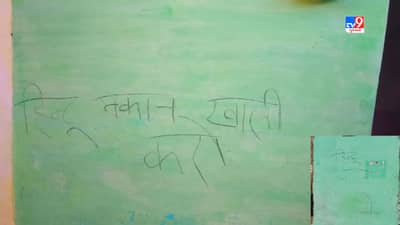 TV9
हिन्दू मकान खाली
करो
हिन्दू